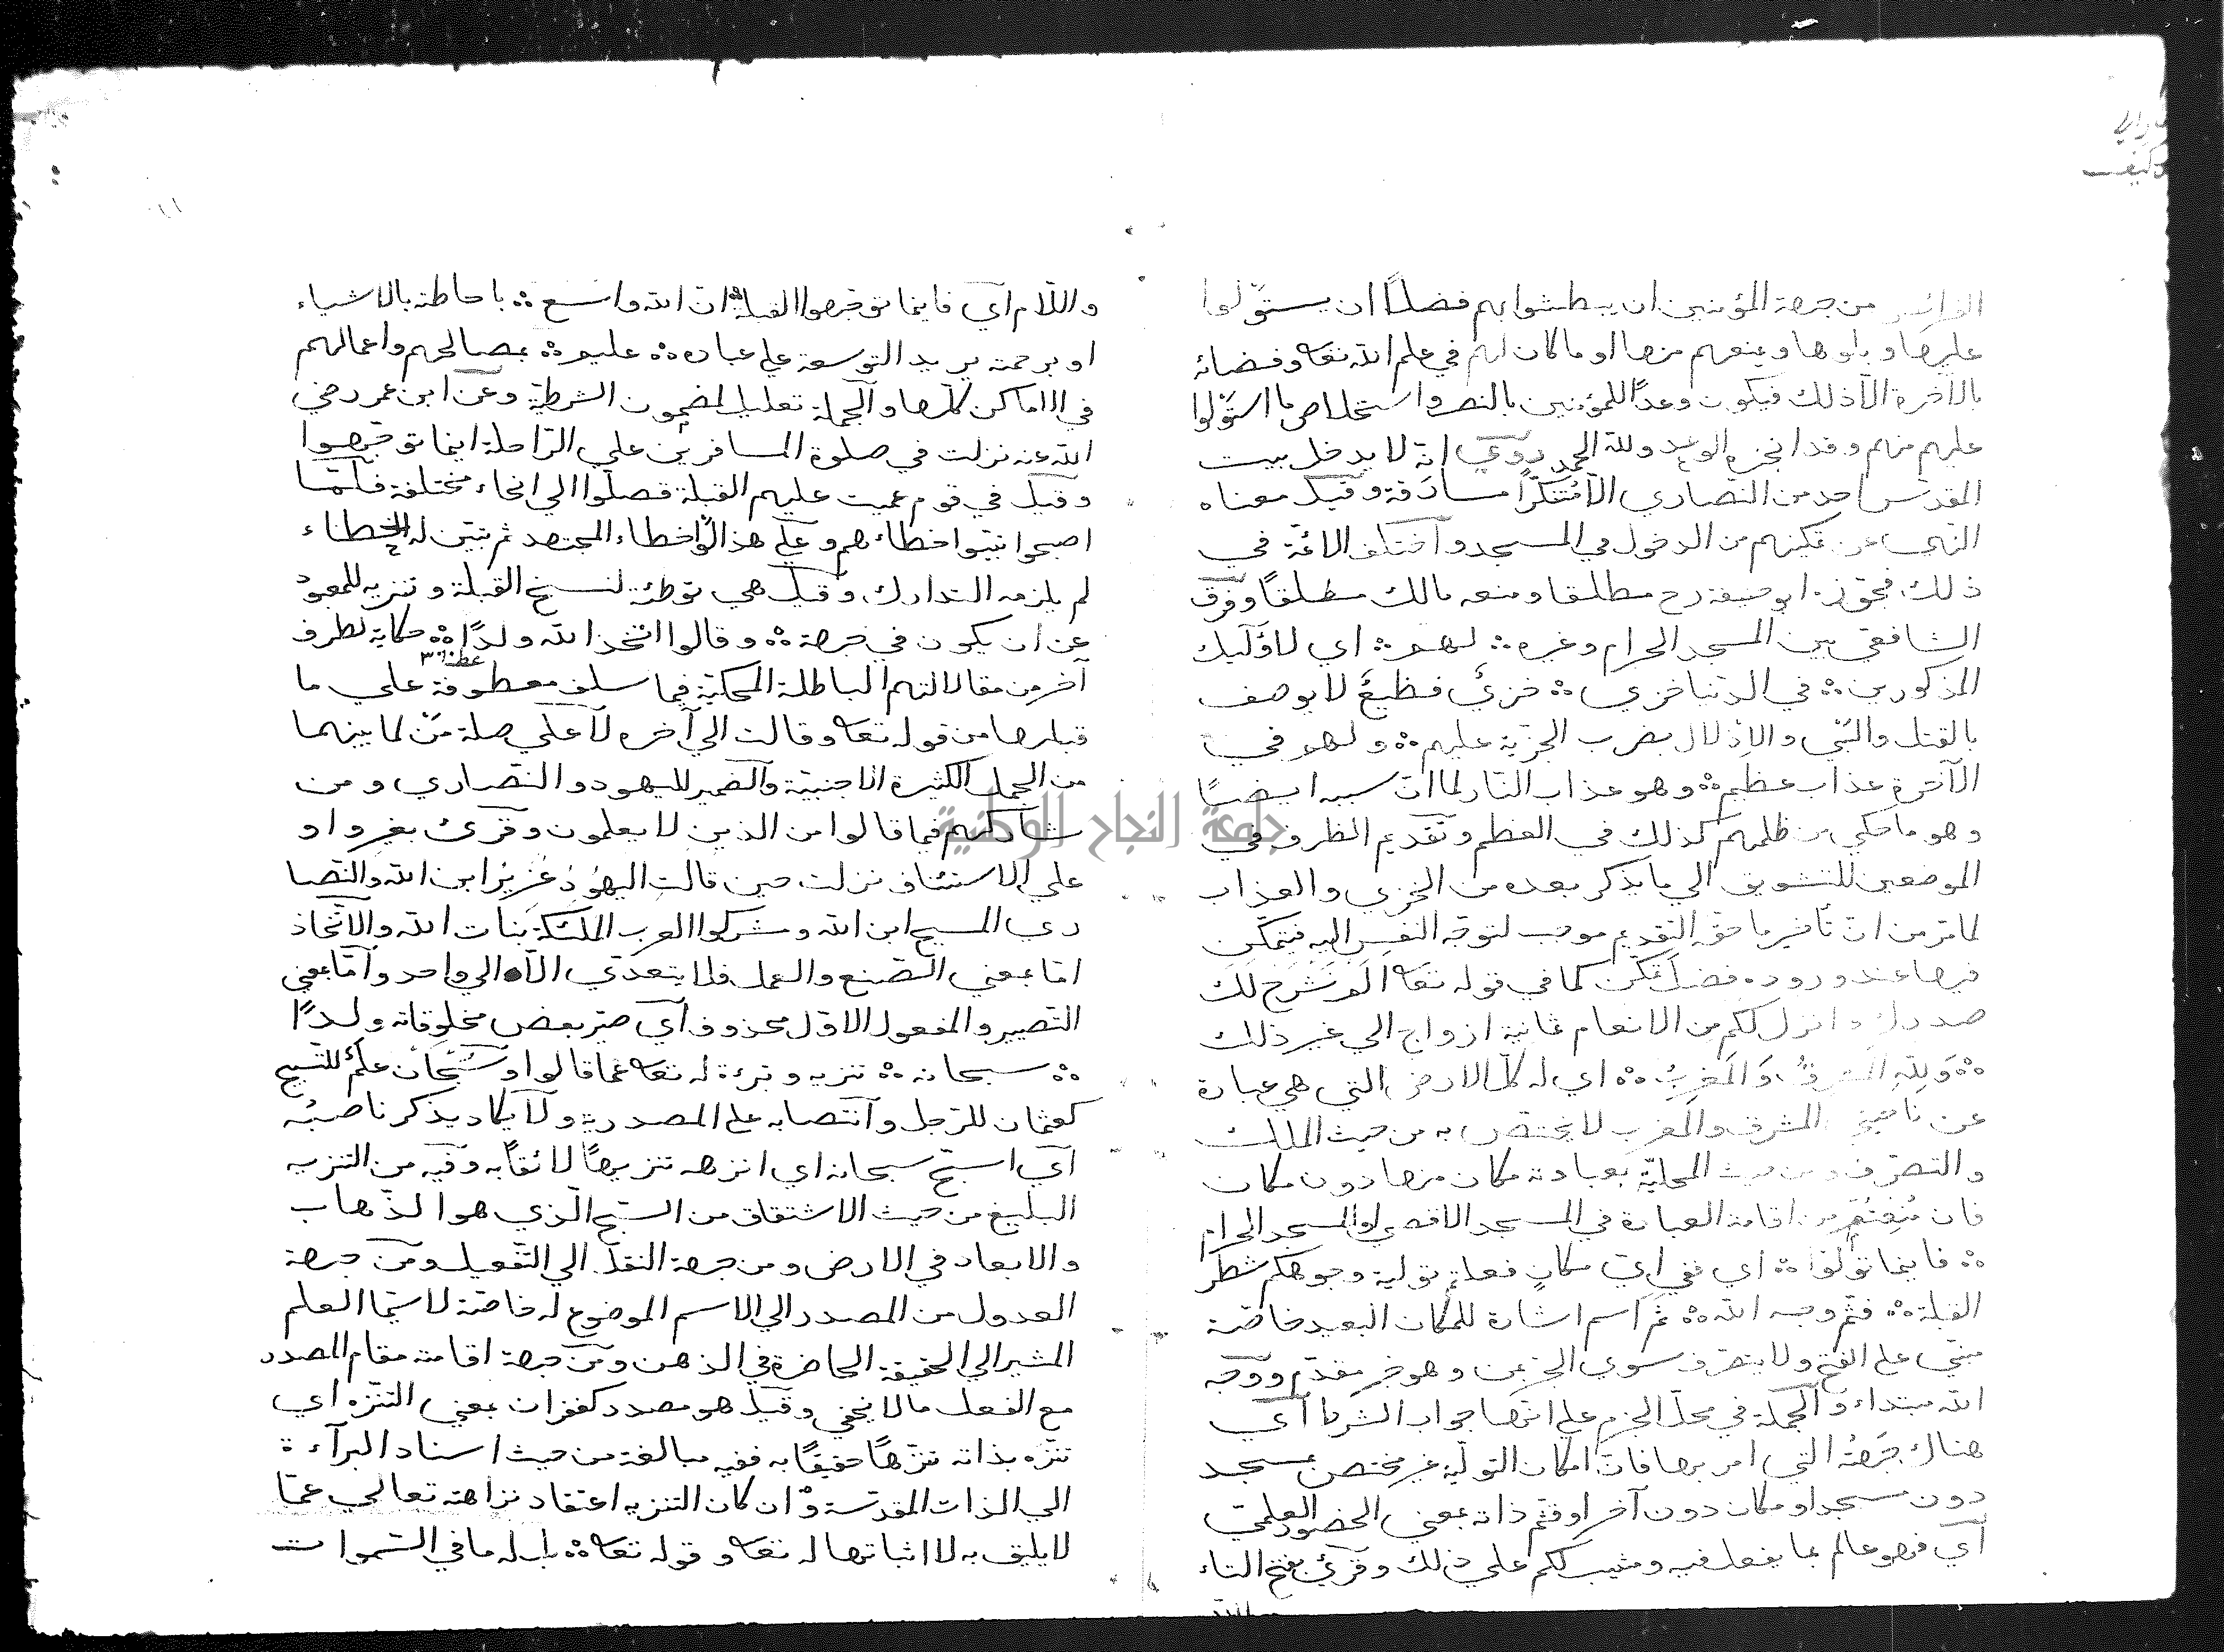 من جهة المؤمنين ان يبطشوا بهم فضلًا ان يستولوا
عليها ويلوها ويمنعوهم منها او ما كان لهم في علم الله تعا وقضائه
بالآخرة الا ذلك فيكون وعدًا للمؤمنين بالنصر واستخلاص ما استولوا
عليهم منهم وقد انجزه الوعد ولله الحمد روي انه لا يدخل بيت
المقدس احد من النصاري الا متنكرًا مسارقة وقيل معناه
النهي عن تمكينهم من الدخول في المسجد واختلف الائمة في
ذلك فجوزه ابو حنيفة رح مطلقا ومنعه مالك مطلقًا وفرق
الشافعي بين المسجد الحرام وغيره لهم اي لاولٓئك
المذكورين في الدنيا خزي خزئ فظيعٌ لا يوصف
بالقتل والسّبْي والاذلال بضرب الجزية عليهم ولهم في
الآخرة عذاب عظيم وهو عذاب النار لما ان سببه ايضًا
وهو ما حكي من ظلمهم كذلك في العظم وتقديم الظرف في
الموضعين للتشويق الي ما يذكر بعده من الخزي والعذاب
لما مر من ان تأخير ما حقه التقديم موجب لتوجه النفس اليه فيتمكن
فيها عند وروده فضل تمكن كما في قوله تعا الَم نَشرَح لَك
صدرك وانزل لكم من الانعام ثمانية ازواج الي غير ذلك
وَلِلّهِ المشرقُ وَالمَغرِبُ اي له كل الارض التي هي عبارة
عن ناحيتي المشرق والمغرب لا يختص به من حيث الملك
والتصرف ومن حيث المحليّة بعبادته مكان منها دون مكان
فان مُنِعتُم من اقامة العبادة في المسجد الاقصي او المسجد الحرام
فاينما تولّوا اي ففي ايّ مكانٍ فعلتم تولية وجوهكم شطر
القبلة فثم وجه الله ثم اسم اشارة للمكان البعيد خاصّة
مبني علي الفتح ولا يتصرف سوي الجر بمن وهو خبر مقدم ووجه
الله مبتداء والجملة في محل الجزم علي انها جواب الشرط اي
هناك جِهتُه التي امر بها فان امكان التولية غير مختص بمسجد
دون مسجد او مكان دون آخر او فثم ذاته بمعني الحضور العلمي
آي فهو عالم بما يفعل فيه ومثيب لكم علي ذلك وقرئ بفتح التاء
واللام آي فاينما توجهوا القبلة ان الله واسع باحاطته بالاشياء
او برحمته يريد التوسعة علي عباده عليم بمصالحهم واعمالهم
في الاماكن كلها والجملة تعليل لمضمون الشرطية وعن ابن عمر رضي
الله عنه نزلت في صلوة المسافرين علي الراحلة اينما توجهوا
وقيل في قوم عميت عليهم القبلة فصلّوا الي انحاء مختلفة فلمّا
اصبحوا تبيّنوا خطاءهم وعلي هذا لو اخطاء المجتهد ثم تبين له الخطاء
لم يلزمه التدارك وقيل هي توطئة لنسخ القبلة وتنزيه للمعبود
عن ان يكون في جهة وقالوا اتخذ الله ولدًا حكاية لطرف
آخر من مقالاتهم الباطلة المحكيّة فيما سلف معطوفة علي ما
قبلها من قوله تعا وقالت الي آخره لا علي صلة مَنْ لما بينهما
من الجمل الكثيرة الاجنبيّة والضمير لليهود والنصاري ومن
شاركهم فيما قالوا من الذين لا يعلمون وقرئ بغير واو
علي الاستئناف نزلت حين قالت اليهُودُ عُزيرٌ ابن الله والنصا
ري المسيح ابن الله ومشركوا العرب الملئكة بنات الله والاتّخاذ
امّا بمعني الصّنع والعمل فلا يتعدّي الا الي واحد وامّا بمعني
التصيير والمفعول الاوّل محذوف آي صيّر بعض مخلوقاته ولدًا
سبحانه تنزيه وتبرئة له تعا عما قالوا وسُبْحَان علَمٌ للتسبيح
كعثمان للرّجل وانتصابه علي المصدرية ولا يكاد يذكر ناصبُه
آي اسبّح سبحانه اي انزهه تنزيهًا لائقًا به وفيه من التنزيه
البليغ من حيث الاشتقاق من السّبح الّذي هو الذّهاب
والابعاد في الارض ومن جهة النقل الي التفعيل ومن جهة
العدول من المصدر الي الاسم الموضوع له خاصّة لا سيّما العلم
المشير الي الحقيقة الحاضرة في الذهن ومن جهة اقامته مقام المصدر
مع الفعل مالا يخفي وقيل هو مصدر كغفران بمعني التنزه اي
تنزّه بذاته تنزّهًا حقيقًا به ففيه مبالغة من حيث اسناد البرآءة
الي الذات المقدّسة وان كان التنزيه اعتقاد نزاهته تعالي عمّا
لا يليق به لا اثباتها له تعا وقوله تعا بل له ما في السّموات
جامعة النجاح الوطنية